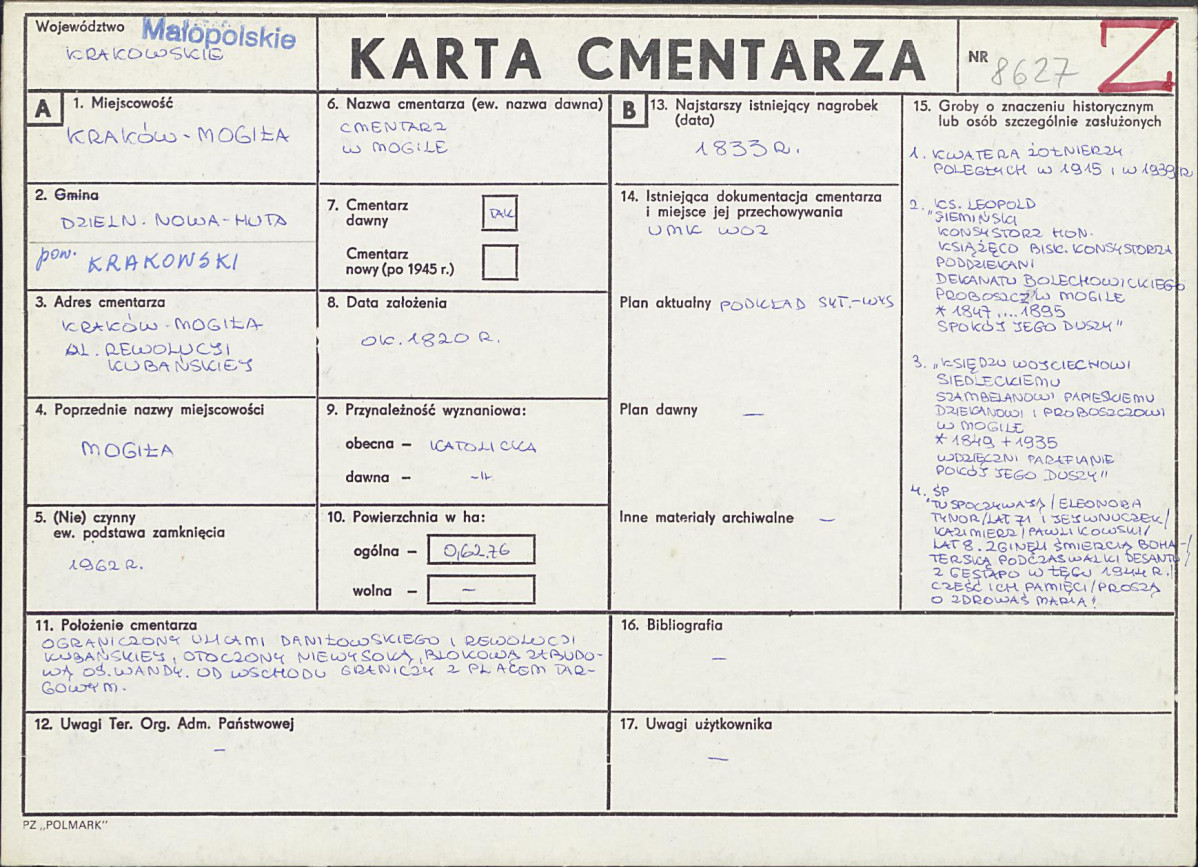 Województwo Małopolskie
KRAKOWSKIE
KARTA CMENTARZA
NR 8627
Z
A
1. Miejscowość
KRAKÓW - MOGIŁA
2. Gmina
DZIELN. NOWA-HUTA
pow. KRAKOWSKI
3. Adres cmentarza
KRAKÓW - MOGIŁA
AL. REWOLUCJI
KUBAŃSKIEJ
4. Poprzednie nazwy miejscowości
MOGIŁA
5. (Nie) czynny
ew. podstawa zamknięcia
1962 R.
6. Nazwa cmentarza (ew. nazwa dawna)
CMENTARZ
W MOGILE
7. Cmentarz
dawny
TAK
Cmentarz
nowy (po 1945 r.)
8. Data założenia
OK. 1820 R.
9. Przynależność wyznaniowa:
obecna – KATOLICKA
dawna – -"-
10. Powierzchnia w ha:
ogólna – 0,62.76
wolna – –
B
13. Najstarszy istniejący nagrobek
(data)
1833 R.
14. Istniejąca dokumentacja cmentarza
i miejsce jej przechowywania
UMK WOZ
Plan aktualny PODKŁAD SYT.-WYS
Plan dawny –
Inne materiały archiwalne –
15. Groby o znaczeniu historycznym
lub osób szczególnie zasłużonych
1. KWATERA ŻOŁNIERZY
POLEGŁYCH W 1915 I W 1939 R
2. KS. LEOPOLD
"SIEMIŃSKI
KONSYSTORZ HON.
KSIĄŻĘCO BISK. KONSYSTORZA
PODDZIEKANI
DEKANATU BOLECHOWICKIEGO
PROBOSZCZ W MOGILE
* 1847 .... 1895
SPOKÓJ JEGO DUSZY"
3. „KSIĘDZU WOJCIECHOWI
SIEDLECKIEMU
SZAMBELANOWI PAPIESKIEMU
DZIEKANOWI I PROBOSZCZOWI
W MOGILE
* 1849 + 1935
WDZIĘCZNI PARAFIANIE
POKÓJ JEGO DUSZY"
4. ŚP
"TU SPOCZYWAJĄ / ELEONORA
TYNOR / LAT 71 I JEJ WNUCZEK /
KAZIMIERZ / PAWLIKOWSKI /
LAT 8. ZGINĘLI ŚMIERCIĄ BOHA-
TERSKĄ PODCZAS WALKI DESANTU /
Z GESTAPO W ŁĘGU 1944 R. /
CZEŚĆ ICH PAMIĘCI / PROSZĄ
O ZDROWAŚ MARIA!
11. Położenie cmentarza
OGRANICZONY ULICAMI DANIŁOWSKIEGO I REWOLUCJI
KUBAŃSKIEJ, OTOCZONY NIEWYSOKĄ, BLOKOWĄ ZABUDO-
WĄ OŚ. WANDY. OD WSCHODU GRANICZY Z PLACEM TAR-
GOWYM.
12. Uwagi Ter. Org. Adm. Państwowej
–
16. Bibliografia
–
17. Uwagi użytkownika
–
PZ „POLMARK"